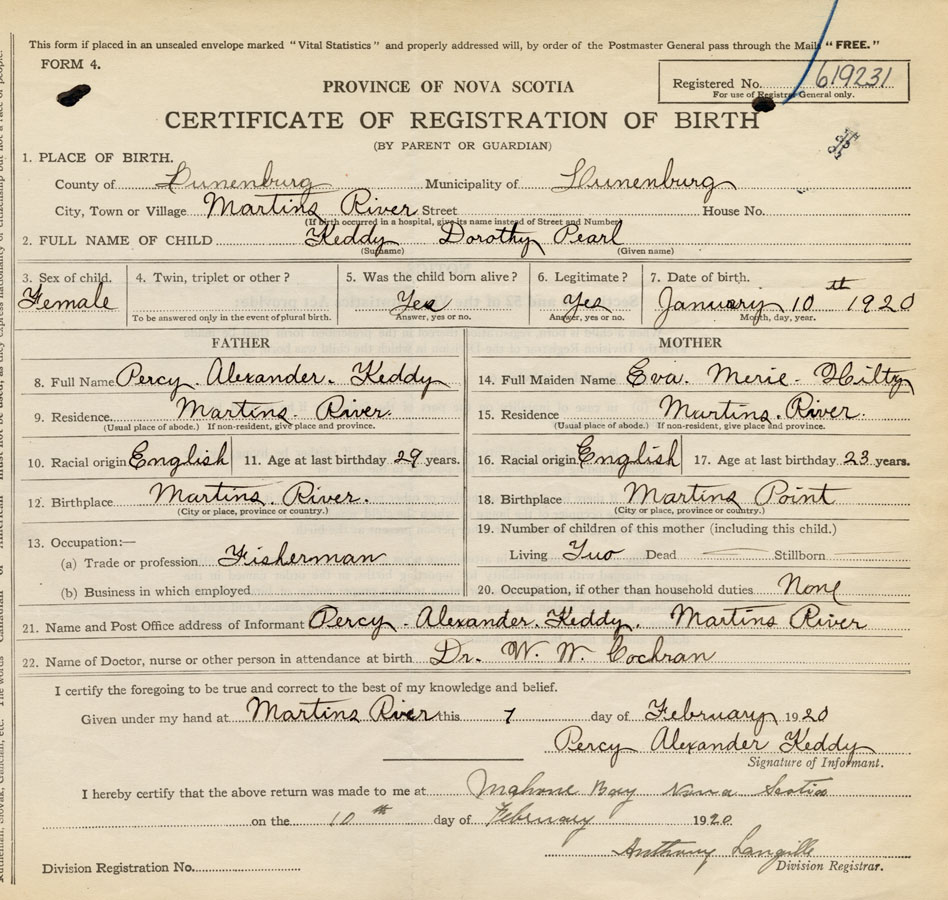 This form if placed in an unsealed envelope marked "Vital Statistics" and properly addressed will, by order of the Postmaster General pass through the Mails "FREE."
FORM 4.
Registered No. 619231
For use of Registrar General only.
PROVINCE OF NOVA SCOTIA
CERTIFICATE OF REGISTRATION OF BIRTH
(BY PARENT OR GUARDIAN)
1. PLACE OF BIRTH.
County of Lunenburg Municipality of Lunenburg
City, Town or Village Martins River Street House No.
(If birth occurred in a hospital, give its name instead of Street and Number)
2. FULL NAME OF CHILD Keddy Dorothy Pearl
(Surname) (Given name)
3. Sex of child. 4. Twin, triplet or other? 5. Was the child born alive? 6. Legitimate? 7. Date of birth.
Female Yes Yes January 10th 1920
To be answered only in the event of plural birth. Answer, yes or no. Answer, yes or no. Month, day, year.
FATHER MOTHER
8. Full Name Percy. Alexander. Keddy 14. Full Maiden Name Eva. Merie. Hilty
9. Residence. Martins. River. 15. Residence Martins. River.
(Usual place of abode.) If non-resident, give place and province. (Usual place of abode.) If non-resident, give place and province.
10. Racial origin English 11. Age at last birthday 29 years. 16. Racial origin English 17. Age at last birthday 23 years.
12. Birthplace Martins. River. 18. Birthplace Martins Point
(City or place, province or country.) (City or place, province or country.)
13. Occupation:— 19. Number of children of this mother (including this child.)
(a) Trade or profession Fisherman Living Two Dead — Stillborn
(b) Business in which employed 20. Occupation, if other than household duties None
21. Name and Post Office address of Informant Percy. Alexander. Keddy. Martins River
22. Name of Doctor, nurse or other person in attendance at birth Dr. W. W. Cochran
I certify the foregoing to be true and correct to the best of my knowledge and belief.
Given under my hand at Martins River this 7 day of February 1920
Percy Alexander Keddy
Signature of Informant.
I hereby certify that the above return was made to me at Mahone Bay Nova Scotia
on the 10th day of February 1920.
Anthony Langille
Division Registrar.
Division Registration No.